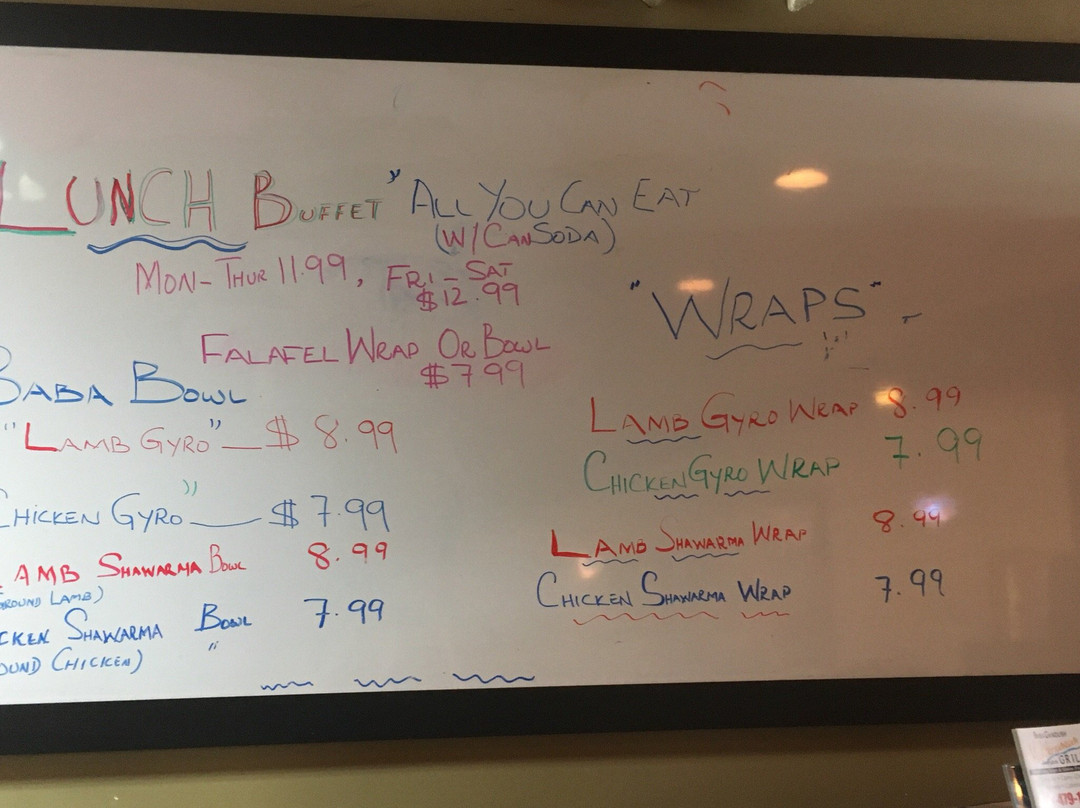 LUNCH BUFFET "ALL YOU CAN EAT
(W/CAN SODA)
MON-THUR 11.99, FRI-SAT
$12.99
FALAFEL WRAP OR BOWL
$7.99
BABA BOWL
"LAMB GYRO" — $ 8.99
CHICKEN GYRO" — $ 7.99
LAMB SHAWARMA BOWL 8.99
GROUND LAMB)
CKEN SHAWARMA BOWL 7.99
OUND CHICKEN)
"WRAPS"
LAMB GYRO WRAP 8.99
CHICKEN GYRO WRAP 7.99
LAMB SHAWARMA WRAP 8.99
CHICKEN SHAWARMA WRAP 7.99
GRIL